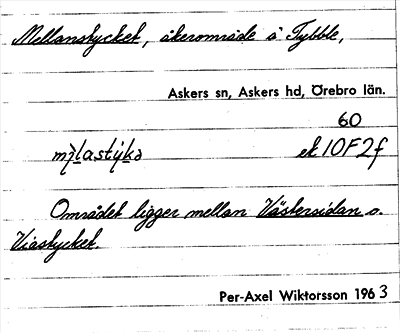 Mellanstycket, åkerområde å Tybble,
Askers sn, Askers hd, Örebro län.
60
ek 10F2f
Området ligger mellan Västersidan o.
Viastycket.
Per-Axel Wiktorsson 1963